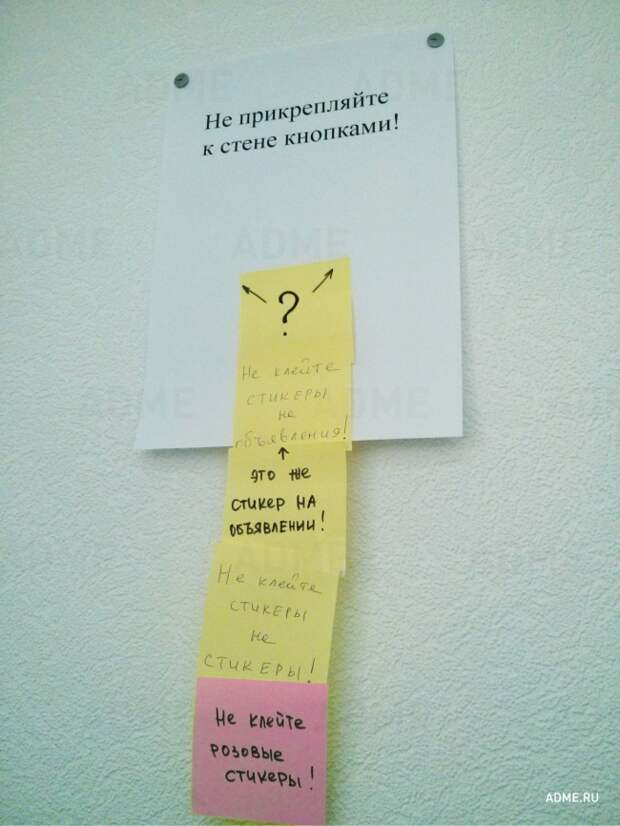 Не прикрепляйте
к стене кнопками!
?
Не клейте
стикеры
на
объявления!
это же
стикер на
объявлении!
Не клейте
стикеры
на
стикеры!
Не клейте
розовые
стикеры!
ADME.RU